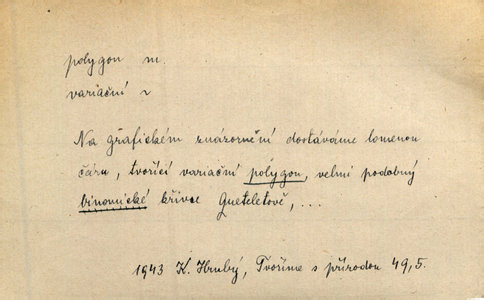 polygon m.
variační ~
Na grafickém znázornění dostáváme lomenou
čáru, tvořící variační polygon, velmi podobný
binomické křivce Queteletově, ...
1943 K. Hrubý, Tvoříme s přírodou 49,5.